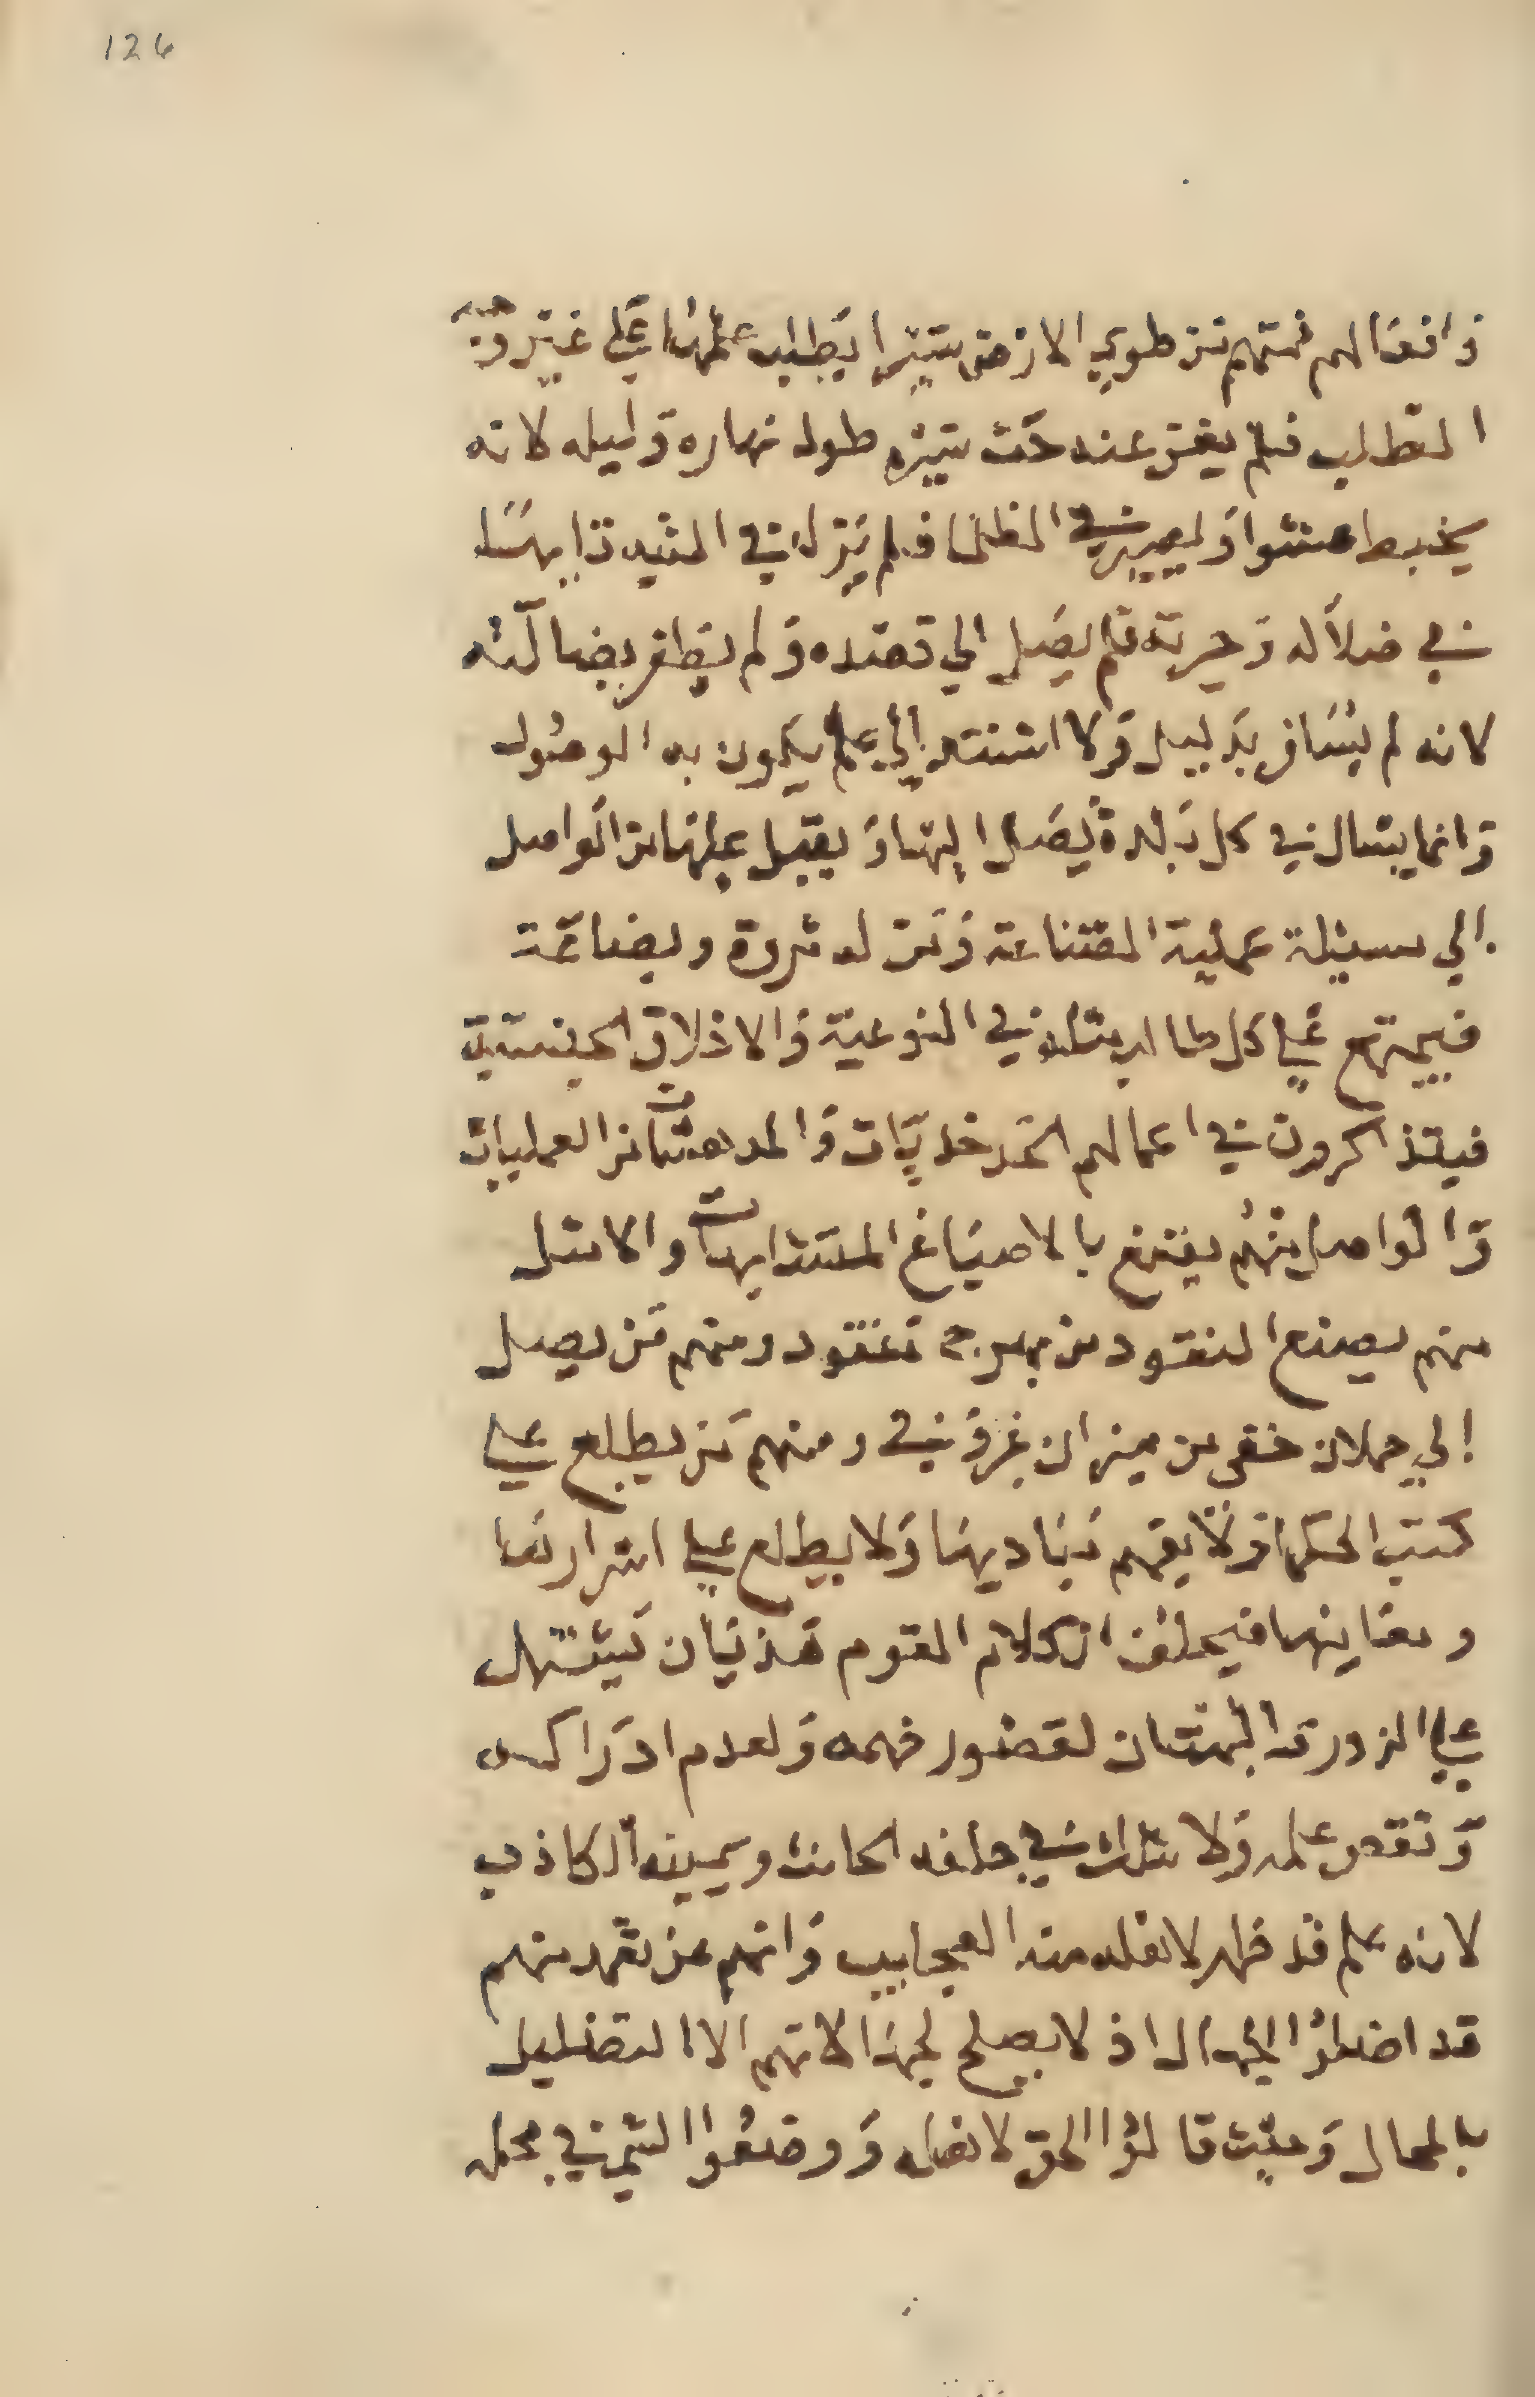 126
وافعالهم فمنهم من طوي الارض سيرا يطلب علمها علي غير وجه
الطلب فلم يفتر عند حث سيره طول نهاره وليله لانه
يخبط عشوا وليسير في الظلما فلم يزل في التيه تايها
في ضلاله وحيرته فلم يصل الي قصده ولم يظفر بضالته
لانه لم يسافر بدليل ولا استند الي علم يكون به الوصول
وانما يسال في كل بلدة يصل اليها و يقبل عليها من الواصل
الي سبيلة عملية الصناعة ومن له ثروة وبضاعة
فيجتمع علي كل طالب مثله في النوعية والاخلاق الجنسية
فيتذاكرون في اعمالهم الخدخديات والمدهشات من العمليات
والواصل منهم يقنع بالاصباغ المستشابهات والامثل
منهم يصنع النقود من بهرج نقود ومنهم من يصل
الي حملان خفي من ميزان غرو في ومنهم من يطلع علي
كتب الحكما ولا يفهم مباديها ولا يطلع علي اسرارها
ومعانيها فيحلف ان كلام القوم هذيان يشتمل
علي الزور والبهتان لقصور فهمه ولعدم ادراكه
ونقص علمه ولا شك في حلفه الحانث ويمينه الكاذب
لانه علم قد ظهر لاهله منه العجايب وانهم عن تعمد منهم
قد اضلوا الجهال اذ لا يصلح لجهالاتهم الا التضليل
بالمحال وحيث قالوا الحق لاهله ووضعوا الشي في محله